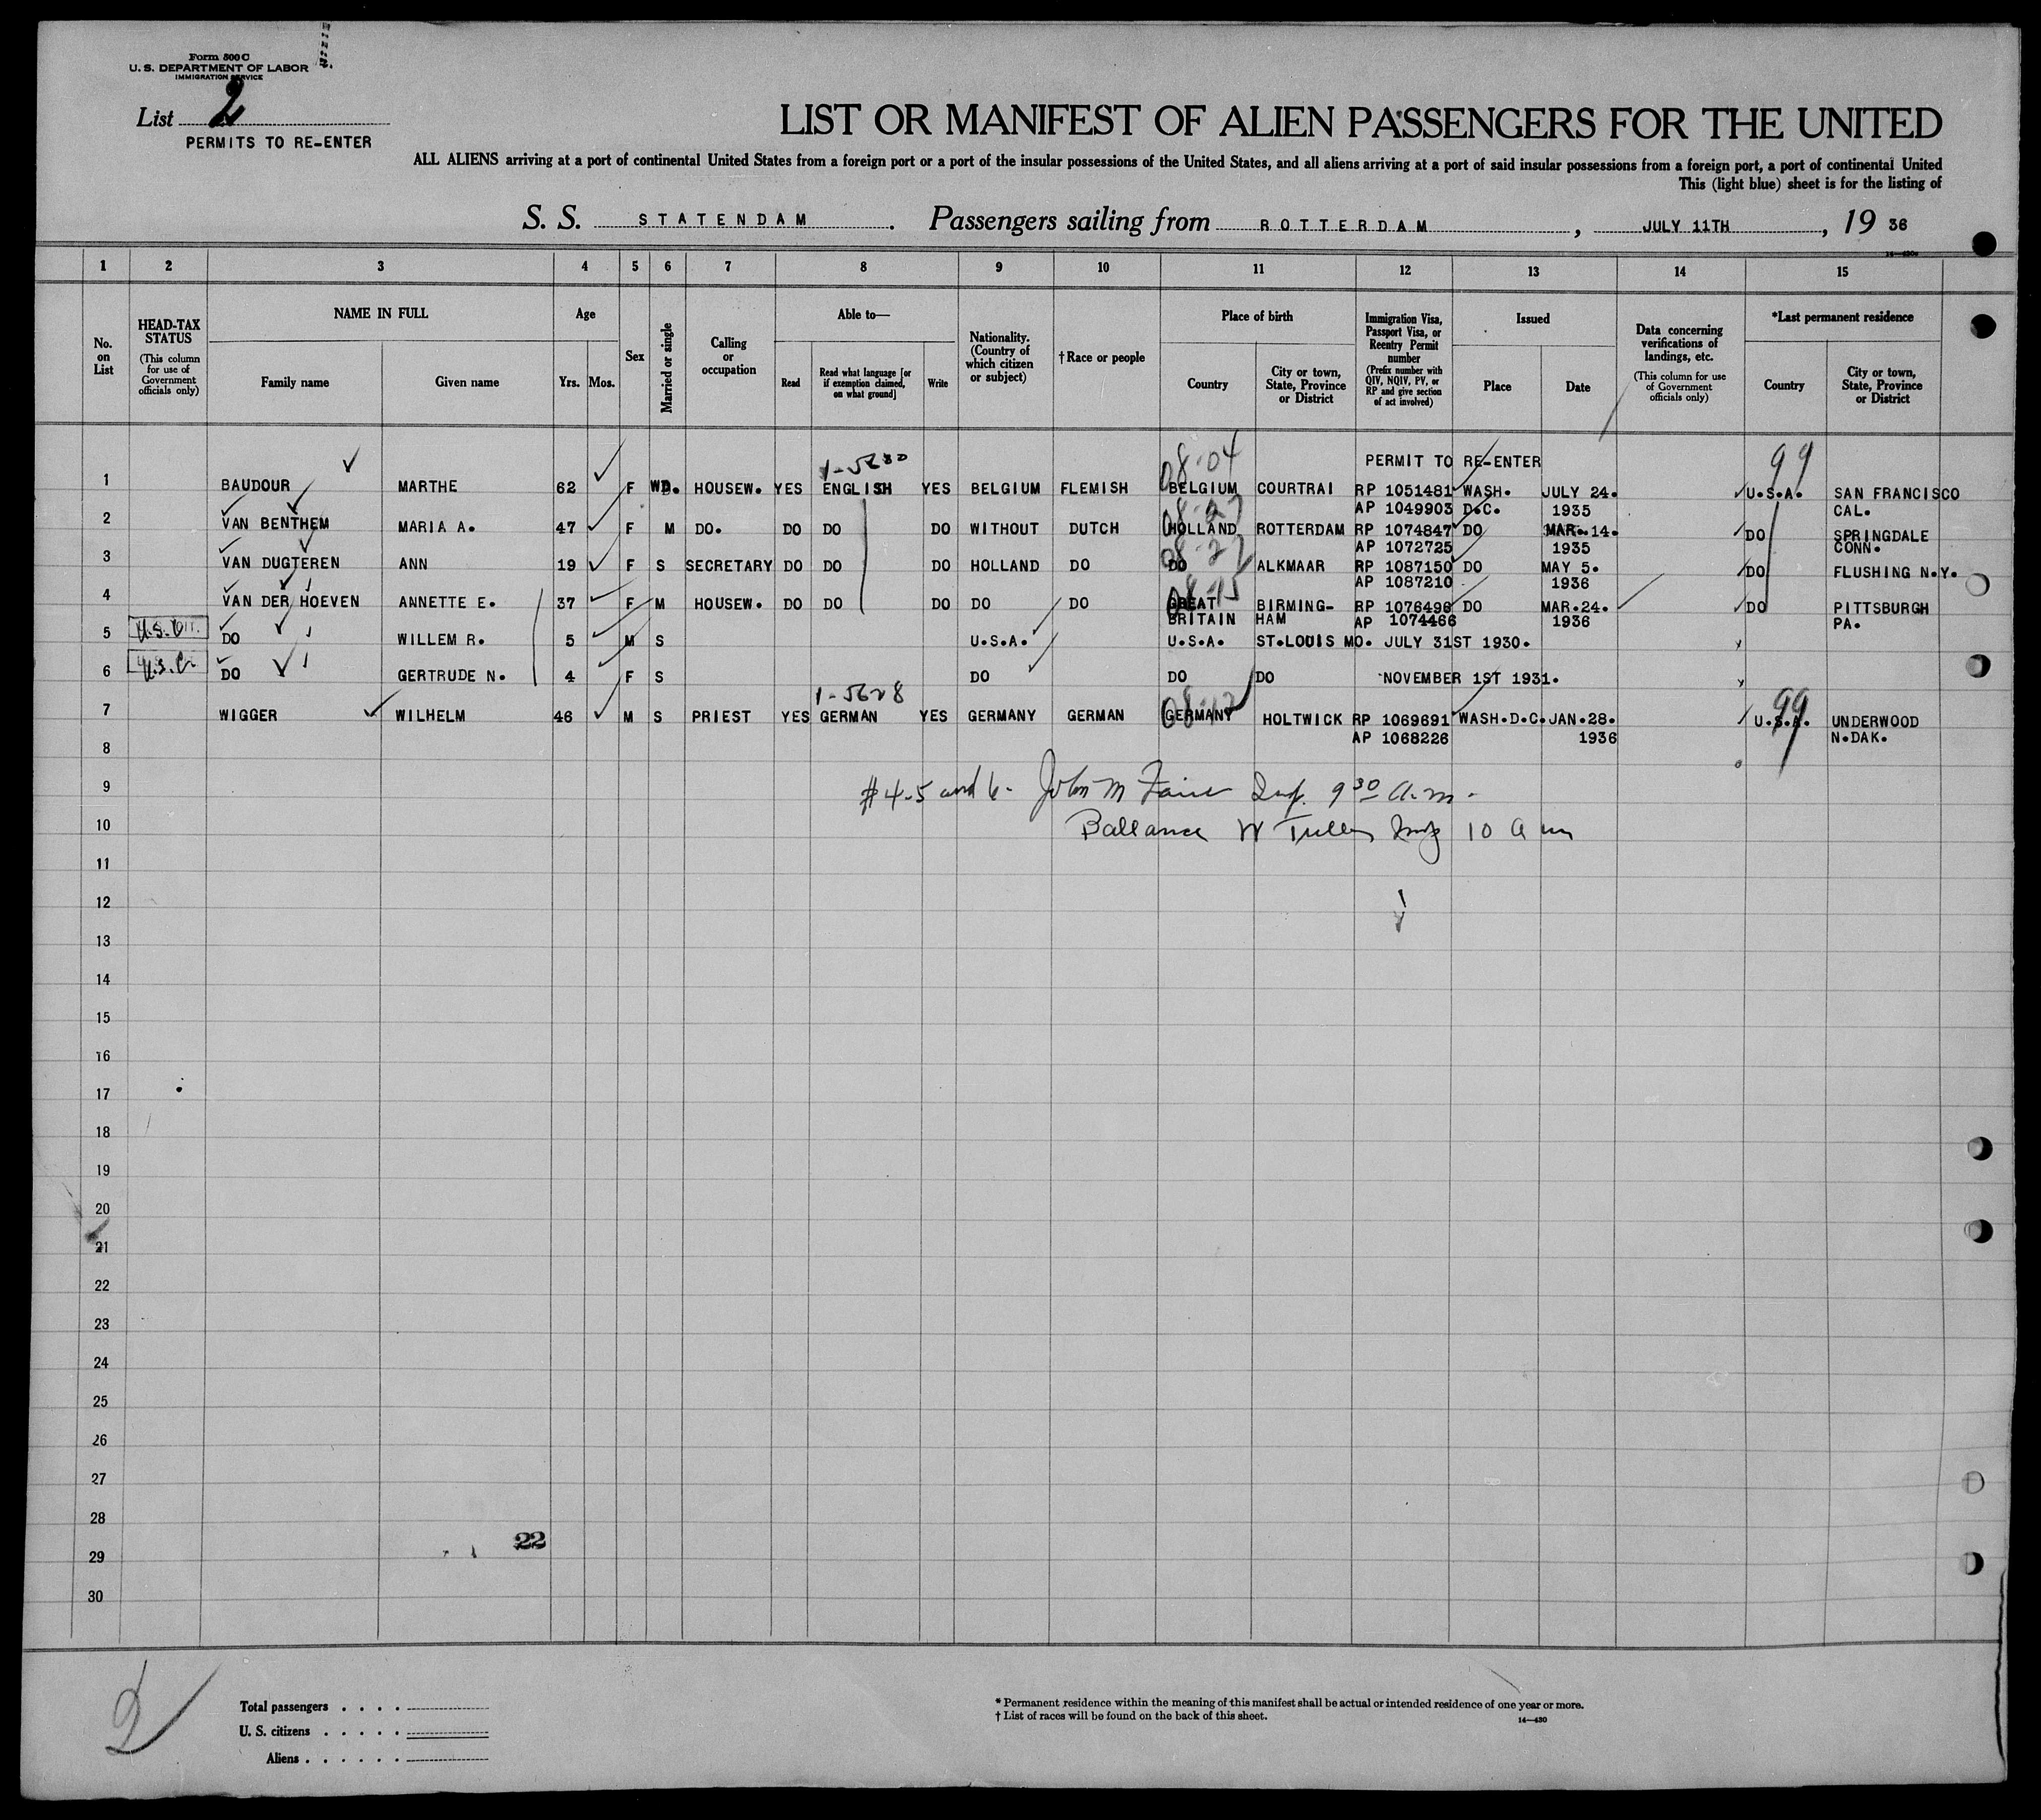 Form 500 C
U. S. DEPARTMENT OF LABOR
IMMIGRATION SERVICE
List 2
PERMITS TO RE-ENTER
LIST OR MANIFEST OF ALIEN PASSENGERS FOR THE UNITED
ALL ALIENS arriving at a port of continental United States from a foreign port or a port of the insular possessions of the United States, and all aliens arriving at a port of said insular possessions from a foreign port, a port of continental United
This (light blue) sheet is for the listing of
S. S. STATENDAM. Passengers sailing from ROTTERDAM, JULY 11TH, 19 36
1 2 3 4 5 6 7 8 9 10 11 12 13 14 15
No. on List
HEAD-TAX STATUS (This column for use of Government officials only)
NAME IN FULL Family name Given name
Age Yrs. Mos.
Sex
Married or single
Calling or occupation
Able to— Read Read what language [or if exemption claimed, on what ground] Write
Nationality. (Country of which citizen or subject)
†Race or people
Place of birth Country City or town, State, Province or District
Immigration Visa, Passport Visa, or Reentry Permit number (Prefix number with QIV, NQIV, PV, or RP and give section of act involved)
Issued Place Date
Data concerning verifications of landings, etc. (This column for use of Government officials only)
*Last permanent residence Country City or town, State, Province or District
1-5280 08-04 PERMIT TO RE-ENTER 99
1 BAUDOUR MARTHE 62 F WD. HOUSEW. YES ENGLISH YES BELGIUM FLEMISH BELGIUM COURTRAI RP 1051481 WASH. JULY 24. U.S.A. SAN FRANCISCO
08-27 AP 1049903 D.C. 1935 CAL.
2 VAN BENTHEM MARIA A. 47 F M DO. DO DO DO WITHOUT DUTCH HOLLAND ROTTERDAM RP 1074847 DO MAR. 14. DO SPRINGDALE
08-27 AP 1072725 1935 CONN.
3 VAN DUGTEREN ANN 19 F S SECRETARY DO DO DO HOLLAND DO DO ALKMAAR RP 1087150 DO MAY 5. DO FLUSHING N.Y.
08-15 AP 1087210 1936
4 VAN DER HOEVEN ANNETTE E. 37 F M HOUSEW. DO DO DO DO DO GREAT BIRMING- RP 1076496 DO MAR.24. DO PITTSBURGH
BRITAIN HAM AP 1074466 1936 PA.
5 DO WILLEM R. 5 M S U.S.A. U.S.A. ST.LOUIS MO. JULY 31ST 1930.
6 DO GERTRUDE N. 4 F S DO DO DO NOVEMBER 1ST 1931.
1-5628 08-12 99
7 WIGGER WILHELM 46 M S PRIEST YES GERMAN YES GERMANY GERMAN GERMANY HOLTWICK RP 1069691 WASH.D.C. JAN.28. U.S.A. UNDERWOOD
8 AP 1068226 1936 N.DAK.
9 #4-5 and 6- John M 9 30 A.m.
10 Ballance W 10 a m
11
12
13
14
15
16
17
18
19
20
21
22
23
24
25
26
27
28
22
29
30
2
Total passengers
U. S. citizens
Aliens
* Permanent residence within the meaning of this manifest shall be actual or intended residence of one year or more.
† List of races will be found on the back of this sheet.
14—430